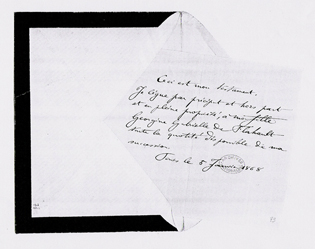 Ceci est mon testament.
Je lègue par préciput et hors part
et en pleine propriété, à ma fille
Georgine Gabrielle de Flahault
toute la quotité disponible de ma
succession.
le 5 Janvier 1868